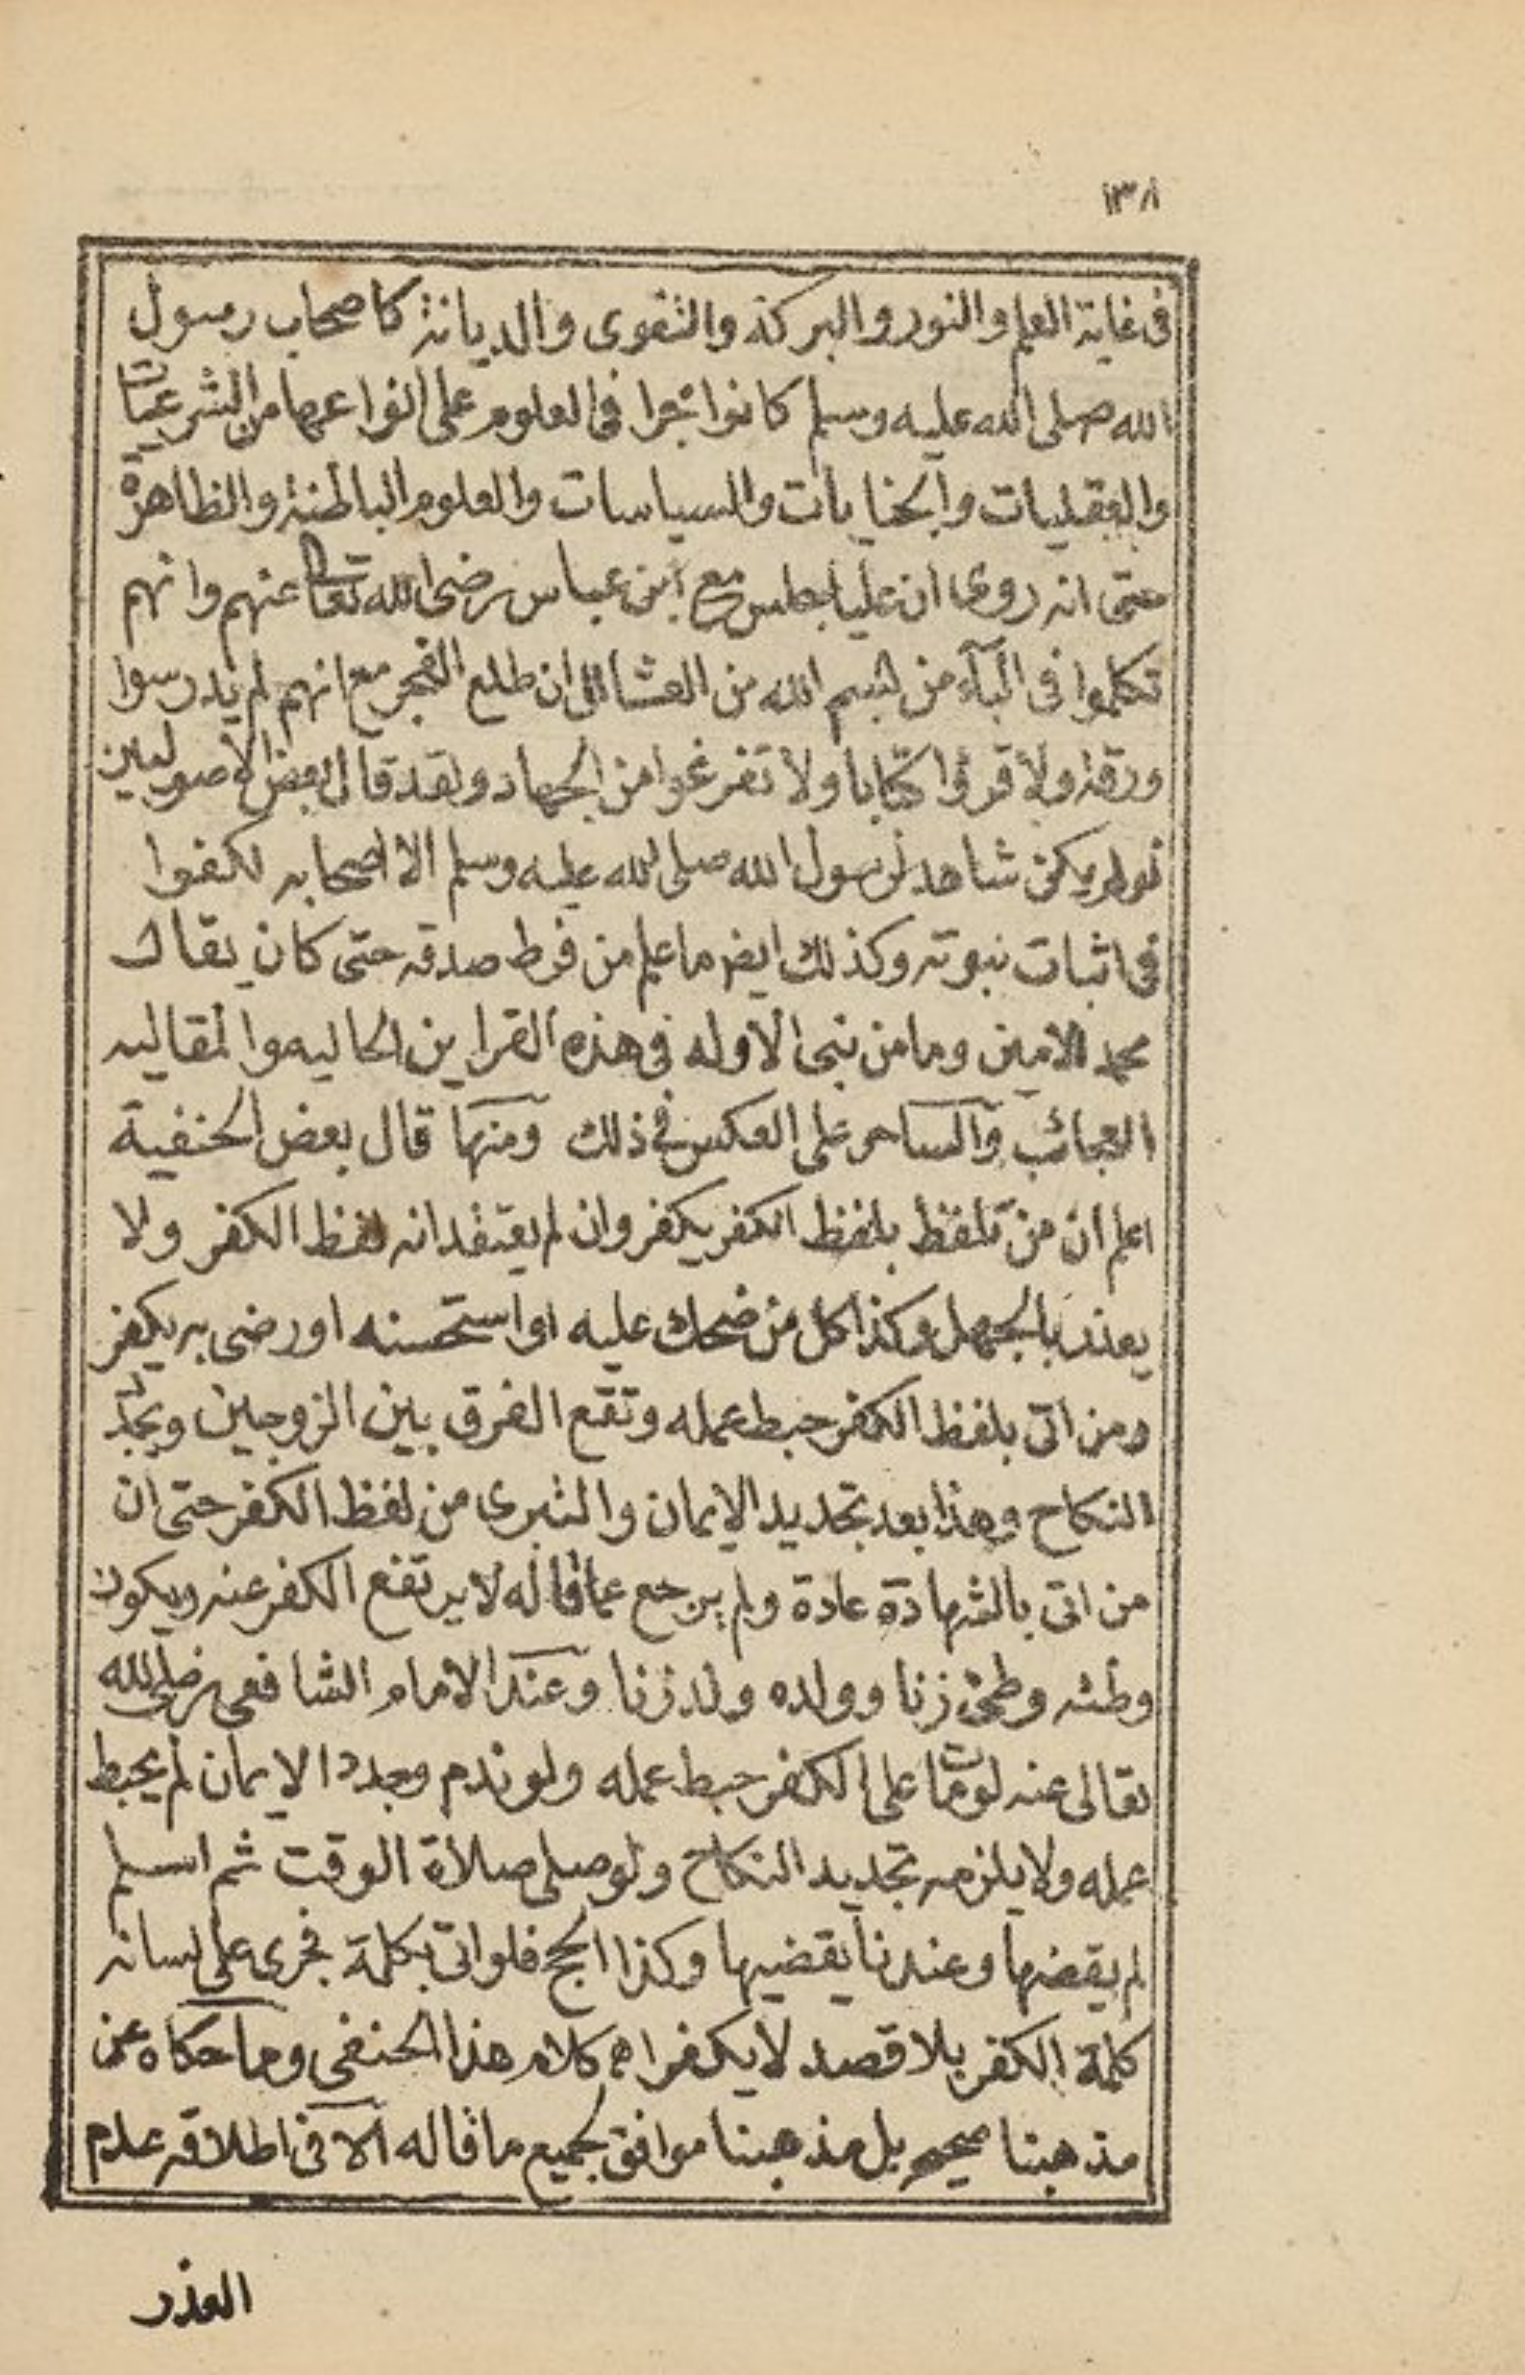 ١٣٨
فى غاية العلم والنور والبركة والتقوى والديانة كاصحاب رسول
الله صلى الله عليه وسلم كانوا بحرا فى العلوم على انواعها من الشرعيات
والعقليات والحسابات والسياسات والعلوم الباطنة والظاهرة
حتى انه روى ان عليا جلس مع ابن عباس رضى الله تعالى عنهم وانهم
تكلموا فى الباء من بسم الله من العشا الى ان طلع الفجر مع انهم لم يدرسوا
ورقة ولا قرؤا كتابا ولا تفرغوا من الجهاد ولقد قال بعض الاصوليين
لو لم يكن شاهد لرسول الله صلى الله عليه وسلم الا اصحابه لكفوا
فى اثبات نبوته وكذلك ايضا ما علم من فرط صدقه حتى كان يقال
محمد الامين وما من نبى الا وله فى هذه القراين الحاليه والمقاليه
العجائب والساحر على العكس فى ذلك ومنها قال بعض الحنفية
اعلم ان من تلفظ بلفظ الكفر يكفر وان لم يعتقد انه لفظ الكفر ولا
يعذر بالجهل وكذا كل من ضحك عليه او استحسنه او رضى به يكفر
ومن اتى بلفظ الكفر حبط عمله وتقع الفرق بين الزوجين ويجدد
النكاح وهذا بعد تجديد الايمان والتبرى من لفظ الكفر حتى ان
من اتى بالشهادة عادة ولم يرجع عما قاله لا يرتفع الكفر عنه ويكون
وطئه وطئ زنا وولده ولد زنا وعند الامام الشافعى رضى الله
تعالى عنه لو مات على الكفر حبط عمله ولو ندم وجدد الايمان لم يحبط
عمله ولا يلزمه تجديد النكاح ولو صلى صلاة الوقت ثم اسلم
لم يقضها وعندنا يقضيها وكذا الحج فلو اتى بكلمة فجرى على لسانه
كلمة الكفر بلا قصد لا يكفر اه كلام هذا الحنفى وما حكاه عن
مذهبنا صحيح بل مذهبنا موافق لجميع ما قاله الا فى اطلاقه عدم
العذر